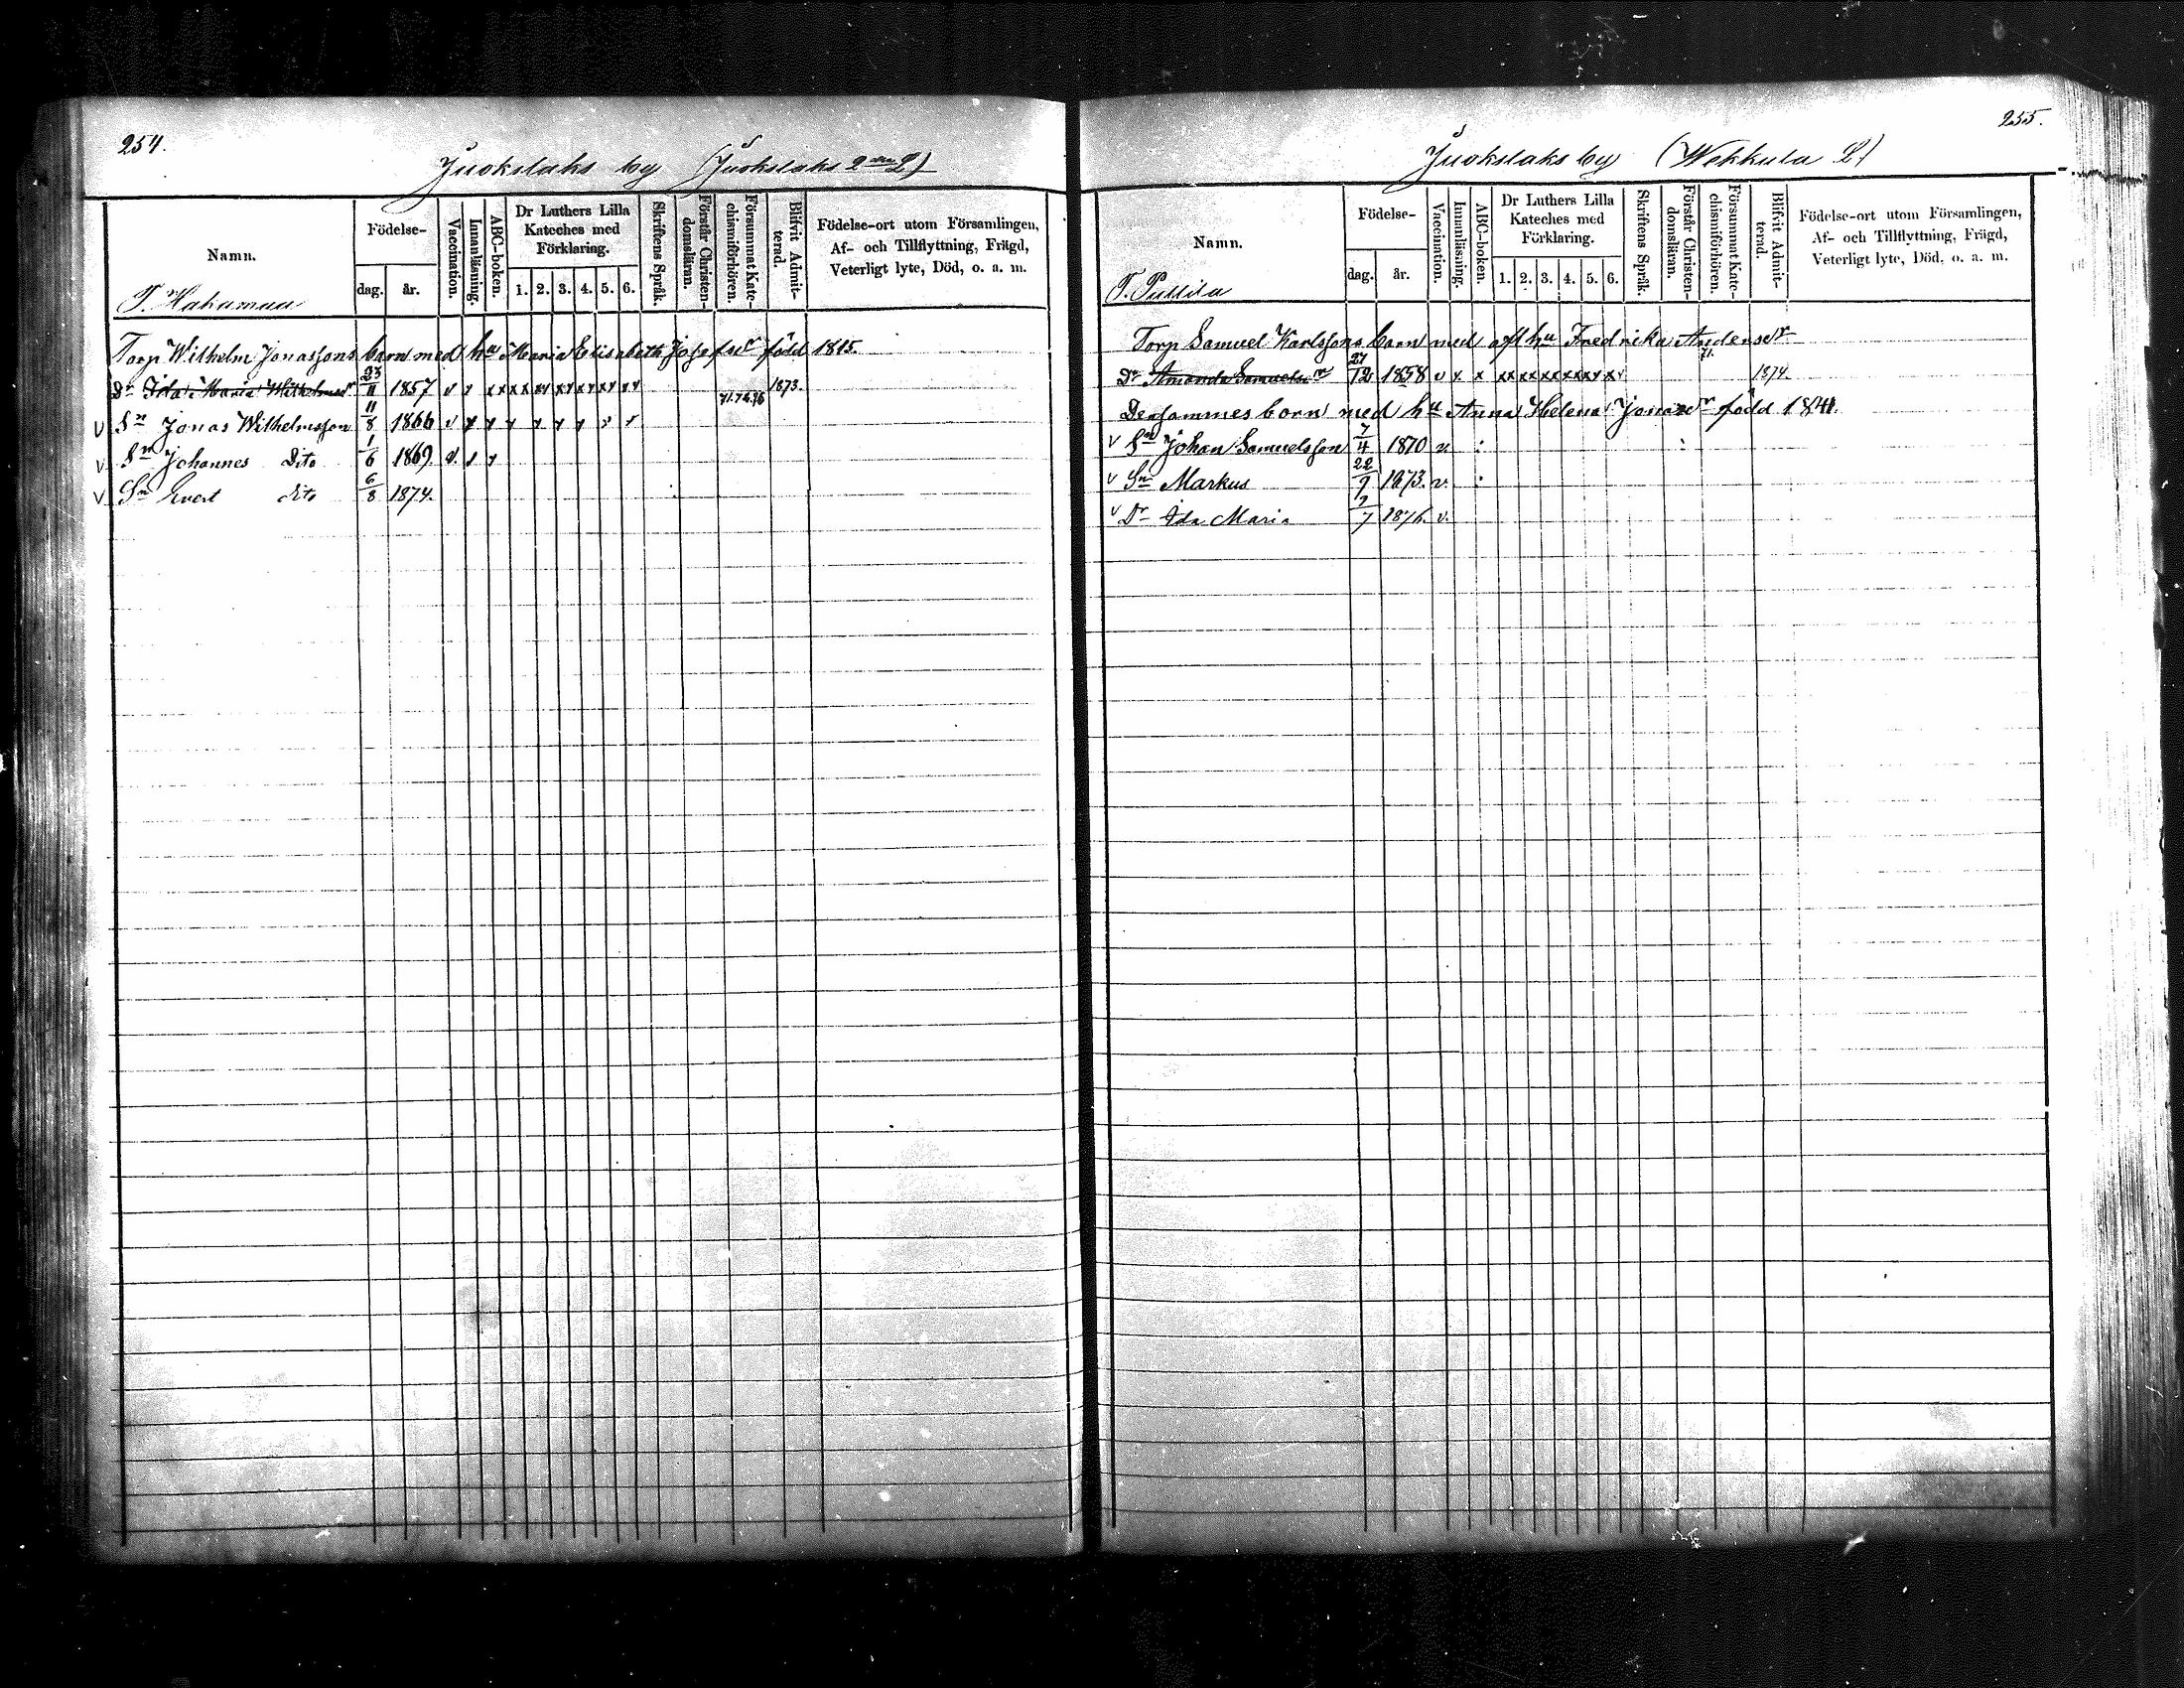 254.
Juokslaks by (Juokslaks 2 L)
Namn.
Födelse-
dag.
år.
Vaccination.
Innanläsning.
ABC-boken.
Dr Luthers Lilla
Kateches med
Förklaring.
1. 2. 3. 4. 5. 6.
Skriftens Språk.
Förstår Christen-
domsläran.
Försummat Kate-
chismiförhören.
Blifvit Admit-
terad.
Födelse-ort utom Församlingen,
Af- och Tillflyttning, Frägd,
Veterligt lyte, Död, o. a. m.
T. Hakamaa
Torp Wilhelm Jonassons barn med hu Maria Elisabeth Josefsdr född 1815.
Dr Ida Maria Wilhelmsdr 23/11 1857 v x x xx xx xx xx xx xx 71.74.76 1873.
v Sn Jonas Wilhelmsson 11/8 1866 v x x x x x x x x
v Sn Johannes Dito 1/6 1869 v. x x
v Sn Evert dito 6/8 1874.
255.
Juokslaks by (Wekkula L)
Namn.
Födelse-
dag.
år.
Vaccination.
Innanläsning.
ABC-boken.
Dr Luthers Lilla
Kateches med
Förklaring.
1. 2. 3. 4. 5. 6.
Skriftens Språk.
Förstår Christen-
domsläran.
Försummat Kate-
chismiförhören.
Blifvit Admit-
terad.
Födelse-ort utom Församlingen,
Af- och Tillflyttning, Frägd,
Veterligt lyte, Död, o. a. m.
T. Pullila
Torp Samuel Karlssons barn med afl hu Fredrika Andersdr
Dr Amanda Samuelsdr 27/12 1858 v x x xx xx xx xx xx xx 71. 1874.
Densammes barn med hu Anna Helena Jonasdr född 1841.
v Sn Johan Samuelsson 7/4 1870 v
v Sn Markus 22/9 1873. v.
v Dr Ida Maria 7 1876. v.